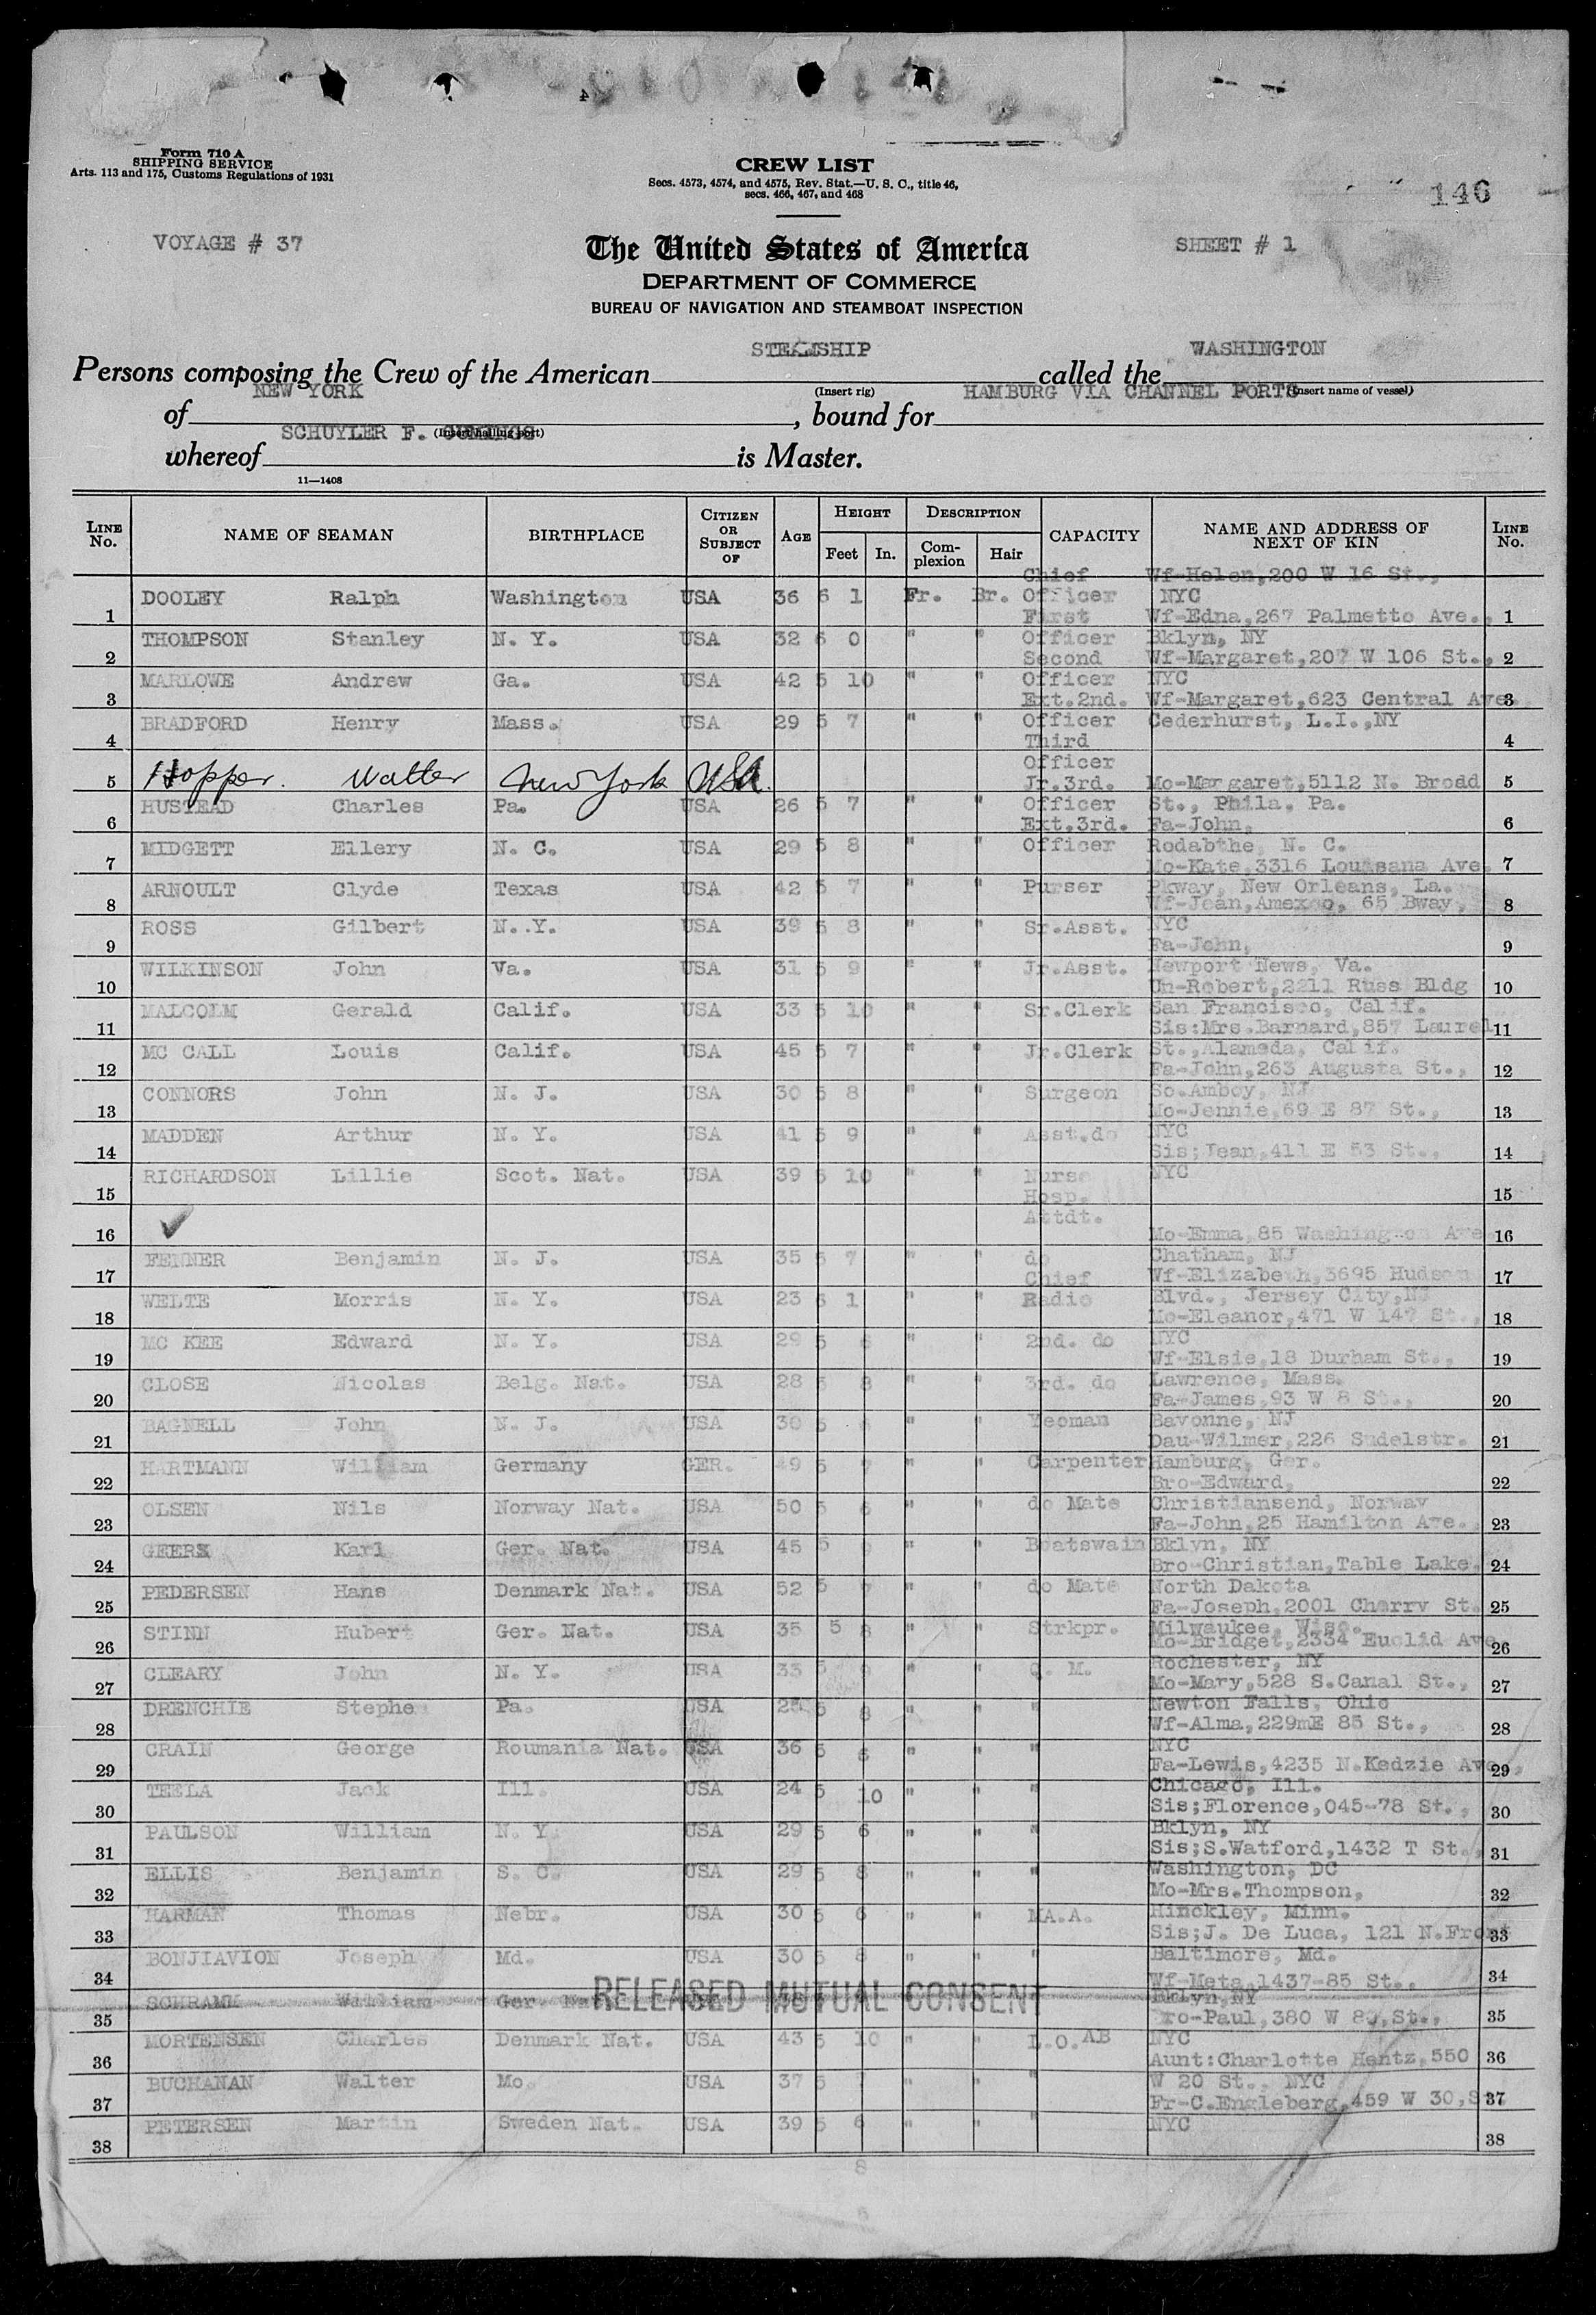 Form 710 A
SHIPPING SERVICE
Arts. 113 and 175, Customs Regulations of 1931
CREW LIST
Secs. 4573, 4574, and 4575, Rev. Stat.—U. S. C., title 46,
secs. 466, 467, and 468
146
VOYAGE # 37
The United States of America
SHEET # 1
DEPARTMENT OF COMMERCE
BUREAU OF NAVIGATION AND STEAMBOAT INSPECTION
STEAMSHIP WASHINGTON
Persons composing the Crew of the American called the
NEW YORK (Insert rig) HAMBURG VIA CHANNEL PORTS (Insert name of vessel)
of , bound for
SCHUYLER F. CUMINGS (Insert hailing port)
whereof is Master.
11—1408
LINE No. NAME OF SEAMAN BIRTHPLACE CITIZEN OR SUBJECT OF AGE HEIGHT Feet In. DESCRIPTION Complexion Hair CAPACITY NAME AND ADDRESS OF NEXT OF KIN LINE No.
1 DOOLEY Ralph Washington USA 36 6 1 Fr. Br. Chief Officer Wf-Helen,200 W 16 St., NYC 1
2 THOMPSON Stanley N. Y. USA 32 6 0 " " First Officer Wf-Edna,267 Palmetto Ave., Bklyn, NY 2
3 MARLOWE Andrew Ga. USA 42 5 10 " " Second Officer Wf-Margaret,207 W 106 St., NYC 3
4 BRADFORD Henry Mass. USA 29 5 7 " " Ext.2nd. Officer Wf-Margaret,623 Central Ave. Cederhurst, L.I.,NY 4
5 Hopper. Walter New York USA. Third Officer 5
6 HUSTEAD Charles Pa. USA 26 5 7 " " Jr.3rd. Officer Mo-Margaret,5112 N. Brodd St., Phila. Pa. 6
7 MIDGETT Ellery N. C. USA 29 5 8 " " Ext.3rd. Officer Fa-John, Rodabthe, N. C. 7
8 ARNOULT Clyde Texas USA 42 5 7 " " Purser Mo-Kate,3316 Louisana Ave. Pkway, New Orleans, La. 8
9 ROSS Gilbert N. Y. USA 39 5 8 " " Sr.Asst. Wf-Jean,Amexco, 65 Bway, NYC 9
10 WILKINSON John Va. USA 31 5 9 " " Jr.Asst. Fa-John, Newport News, Va. 10
11 MALCOLM Gerald Calif. USA 33 5 10 " " Sr.Clerk Un-Robert,2211 Russ Bldg San Francisco, Calif. 11
12 MC CALL Louis Calif. USA 45 5 7 " " Jr.Clerk Sis:Mrs.Barnard,857 Laurel St.,Alameda, Calif. 12
13 CONNORS John N. J. USA 30 5 8 " " Surgeon Fa-John,263 Augusta St., So.Amboy, NJ 13
14 MADDEN Arthur N. Y. USA 41 5 9 " " Asst.do Mo-Jennie,69 E 87 St., NYC 14
15 RICHARDSON Lillie Scot. Nat. USA 39 5 10 " " Nurse Sis;Jean,411 E 53 St., NYC 15
16 Hosp. Attdt. 16
17 FENNER Benjamin N. J. USA 35 5 7 " " do Mo-Emma,85 Washington Ave Chatham, NJ 17
18 WELTE Morris N. Y. USA 23 6 1 " " Chief Radio Wf-Elizabeth,3695 Hudson Blvd., Jersey City,NJ 18
19 MC KEE Edward N. Y. USA 29 5 6 " " 2nd. do Mo-Eleanor,471 W 147 St., NYC 19
20 CLOSE Nicolas Belg. Nat. USA 28 5 8 " " 3rd. do Wf-Elsie,18 Durham St., Lawrence, Mass. 20
21 BAGNELL John N. J. USA 30 5 " " Yeoman Fa-James,93 W 8 St., Bayonne, NJ 21
22 HARTMANN William Germany GER. 49 5 " " Carpenter Dau-Wilmer,226 Sudelstr. Hamburg, Ger. 22
23 OLSEN Nils Norway Nat. USA 50 5 6 " " do Mate Bro-Edward, Christiansend, Norway 23
24 GEERX Karl Ger. Nat. USA 45 5 " " Boatswain Fa-John,25 Hamilton Ave., Bklyn, NY 24
25 PEDERSEN Hans Denmark Nat. USA 52 5 " " do Mate Bro-Christian,Table Lake, North Dakota 25
26 STINN Hubert Ger. Nat. USA 35 5 8 " " Strkpr. Fa-Joseph,2001 Cherry St. Milwaukee, Wisc. 26
27 CLEARY John N. Y. USA 33 5 " " Q. M. Mo-Bridget,2334 Euclid Ave Rochester, NY 27
28 DRENCHIE Stephe Pa. USA 25 5 8 " " " Mo-Mary,528 S.Canal St., Newton Falls, Ohio 28
29 CRAIN George Roumania Nat. USA 36 5 6 " " " Wf-Alma,229mE 85 St., NYC 29
30 TEELA Jack Ill. USA 24 5 10 " " " Fa-Lewis,4235 N.Kedzie Ave., Chicago, Ill. 30
31 PAULSON William N. Y. USA 29 5 6 " " " Sis;Florence,045-78 St., Bklyn, NY 31
32 ELLIS Benjamin S. C. USA 29 5 8 " " " Sis;S.Watford,1432 T St., Washington, DC 32
33 HARMAN Thomas Nebr. USA 30 5 6 " " MA.A. Mo-Mrs.Thompson, Hinckley, Minn. 33
34 BONJIAVION Joseph Md. USA 30 5 8 " " " Sis;J. De Luca, 121 N.Front Baltimore, Md. 34
35 SCHRAMM William Ger. Nat. RELEASED MUTUAL CONSENT Wf-Meta,1437-85 St., Bklyn,NY 35
36 MORTENSEN Charles Denmark Nat. USA 43 5 10 " " L.O.AB Bro-Paul,380 W St., NYC 36
37 BUCHANAN Walter Mo. USA 37 5 7 " " " Aunt:Charlotte Hentz,550 W 20 St., NYC 37
38 PETERSEN Martin Sweden Nat. USA 39 5 6 " " " Fr-C.Engleberg,459 W 30,St. NYC 38
8
6